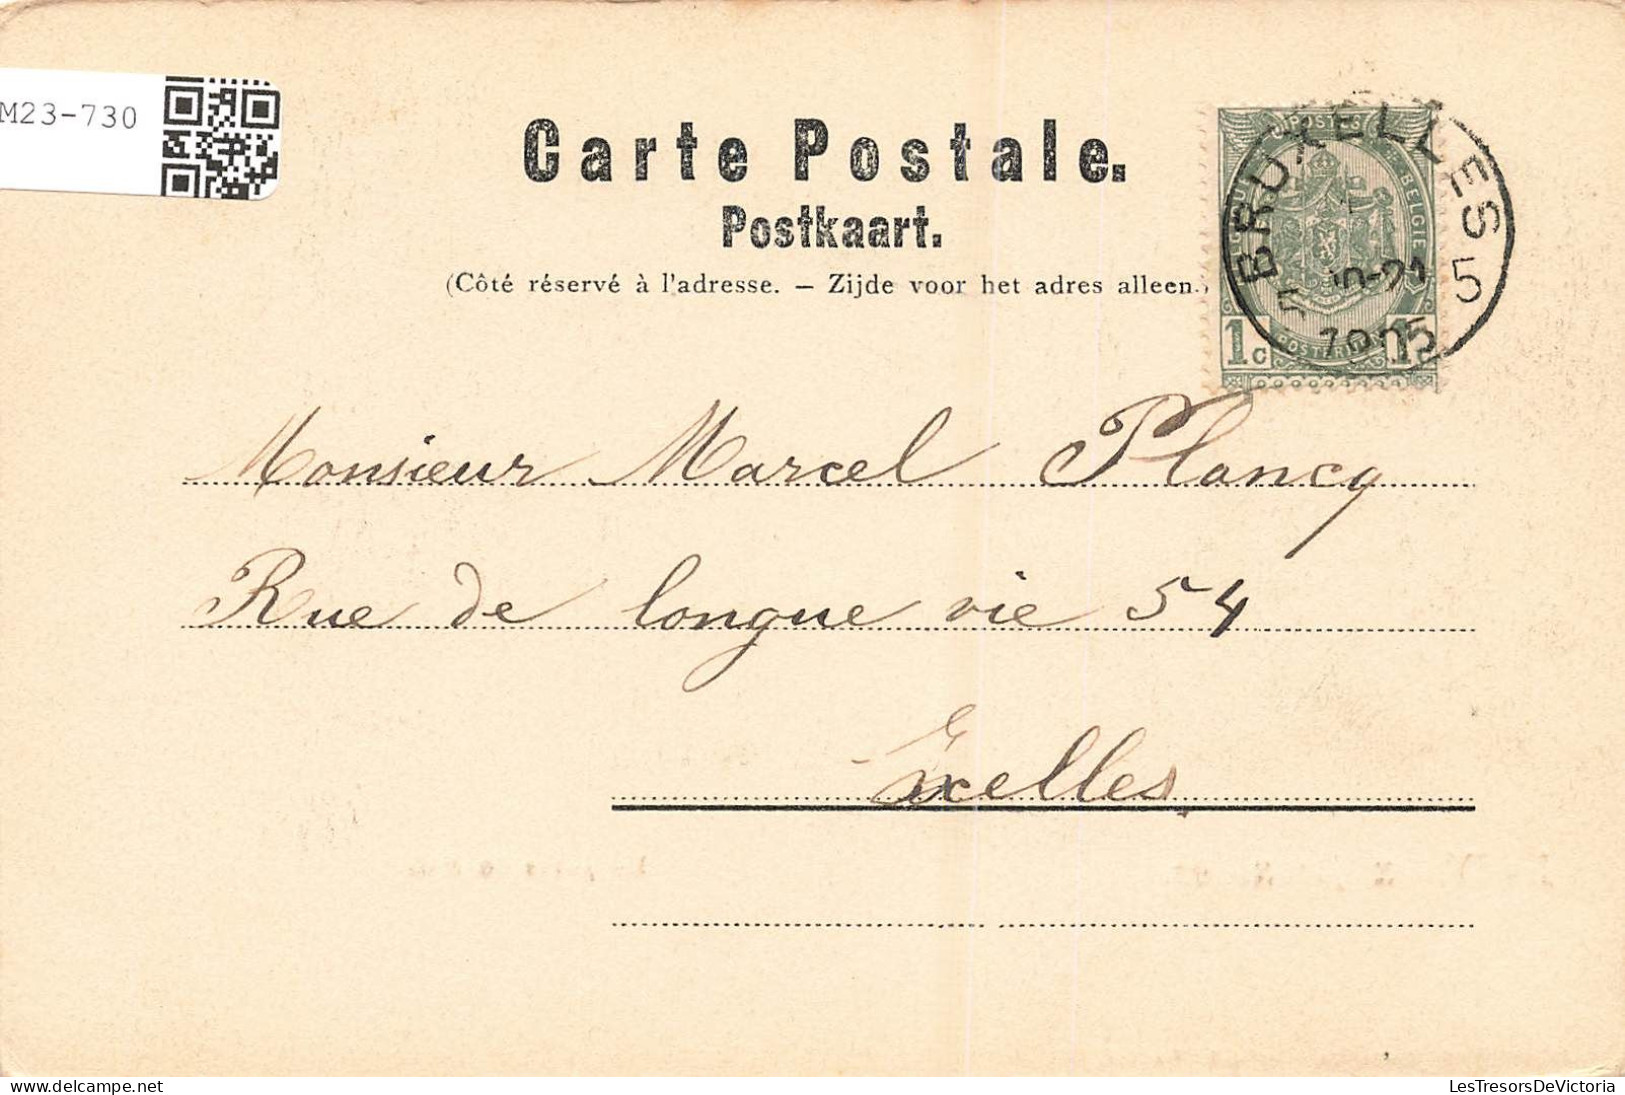 M23-730
Carte Postale.
Postkaart.
(Côté réservé à l'adresse. — Zijde voor het adres alleen.)
POSTES
BELGIE
1c
BRUXELLES 5
1905
Monsieur Marcel Plancq
Rue de longue vie 54
Ixelles
delcampe.net
LesTresorsDeVictoria